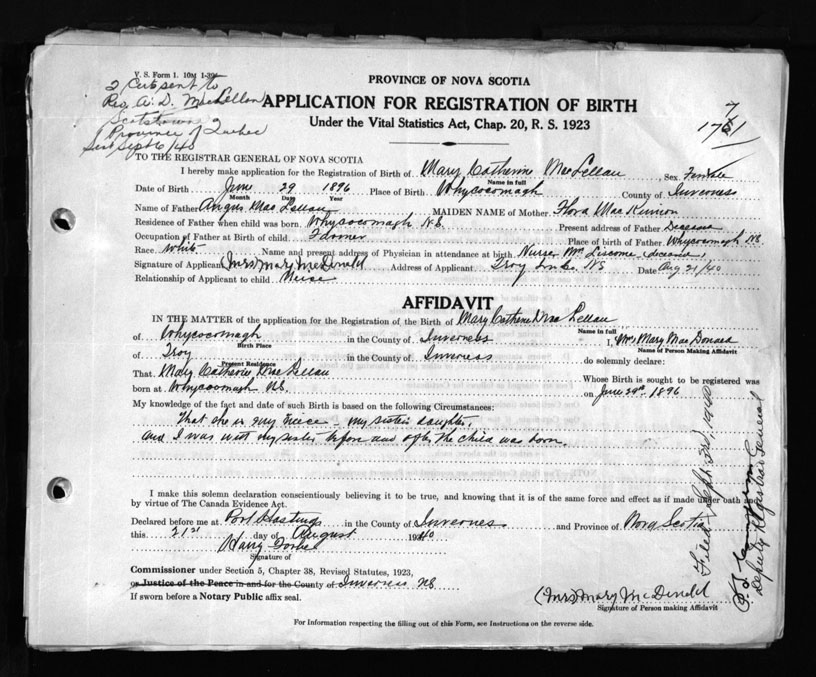 V. S. Form 1. 10M 1-39
2 Certs sent to
Rev. A. D. MacLellan
Scotstown
Province of Quebec
Sent Sept 6/40
PROVINCE OF NOVA SCOTIA
APPLICATION FOR REGISTRATION OF BIRTH
Under the Vital Statistics Act, Chap. 20, R. S. 1923
TO THE REGISTRAR GENERAL OF NOVA SCOTIA
I hereby make application for the Registration of Birth of Mary Catherine MacLellan Sex Female
Name in full
Date of Birth June 29 1896 Place of Birth Whycocomagh County of Inverness
Month Date Year
Name of Father Angus MacLellan MAIDEN NAME of Mother Flora MacKinnon
Residence of Father when child was born Whycocomagh N.S. Present address of Father Decease
Occupation of Father at Birth of child Farmer Place of birth of Father Whycocomagh N.S.
Race White Name and present address of Physician in attendance at birth Nurse Mrs Liscome deceased
Signature of Applicant (Mrs) Mary McDonald Address of Applicant Troy Inv. Co. N.S. Date Aug 21/40
Relationship of Applicant to child
AFFIDAVIT
IN THE MATTER of the application for the Registration of the Birth of Mary Catherine MacLellan
Name in full
of Whycocomagh in the County of Inverness I, Mrs Mary MacDonald
Birth Place Name of Person Making Affidavit
of Troy in the County of Inverness do solemnly declare:
Present Residence
That Mary Catherine MacLellan Whose Birth is sought to be registered was
born at Whycocomagh N.S. on June 29th 1896
My knowledge of the fact and date of such Birth is based on the following Circumstances:
That she is my niece – my sisters daughter,
and I was with my sister before and after the child was born.
I make this solemn declaration conscientiously believing it to be true, and knowing that it is of the same force and effect as if made under oath and
by virtue of The Canada Evidence Act.
Declared before me at Port Hastings in the County of Inverness and Province of Nova Scotia
this 21st day of August 1940
Harry
Signature of
Commissioner under Section 5, Chapter 38, Revised Statutes, 1923,
or Justice of the Peace in and for the County of Inverness N.S.
If sworn before a Notary Public affix seal.
(Mrs) Mary McDonald
Signature of Person making Affidavit
For Information respecting the filling out of this Form, see Instructions on the reverse side.
Filed Sept. 3rd, 1940
Deputy Registrar General